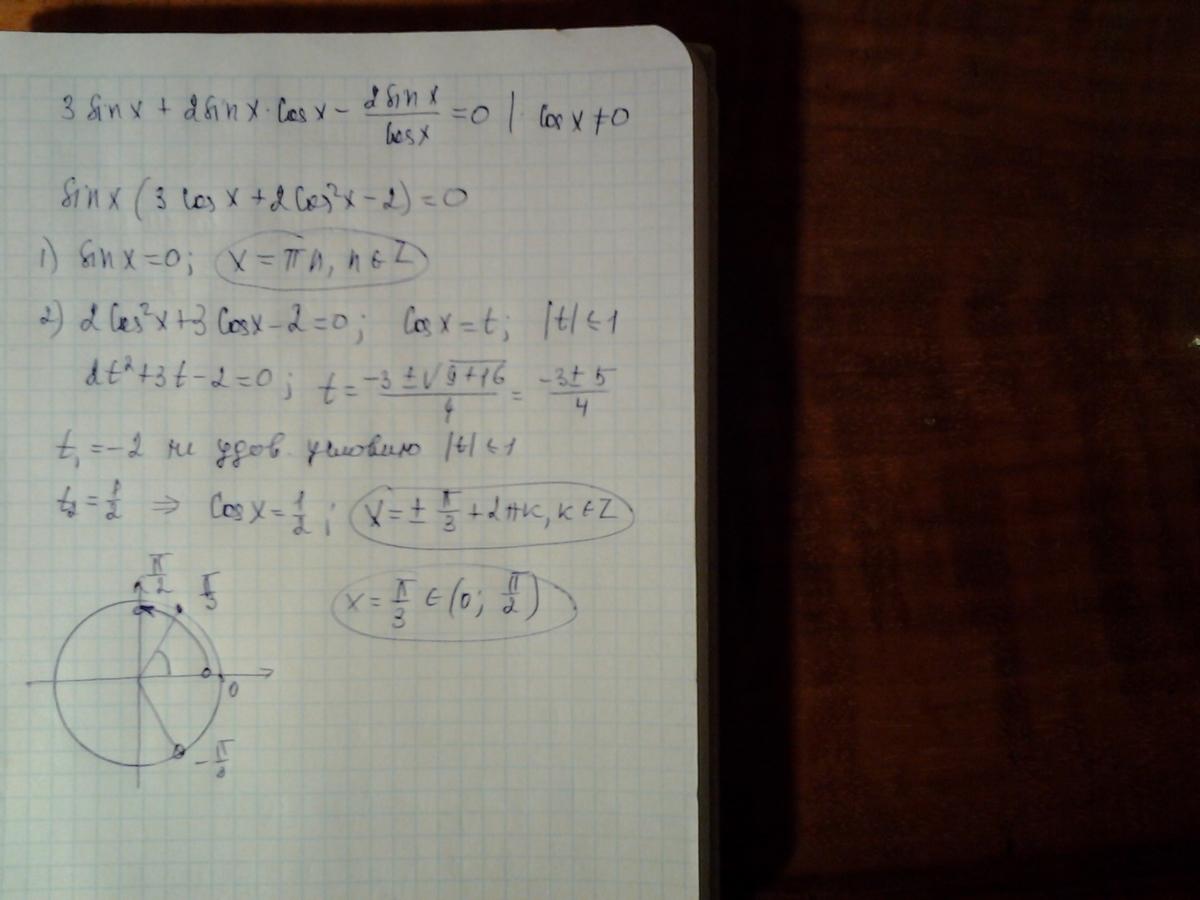 3 sin x + 2 sin x · cos x - \frac{2 sin x}{cos x} = 0 | · cos x ≠ 0
sin x (3 cos x + 2 cos²x - 2) = 0
1) sin x = 0; x = πn, n ∈ Z
2) 2 cos²x + 3 cos x - 2 = 0; cos x = t; |t| ≤ 1
2t² + 3t - 2 = 0; t = \frac{-3 ± √9+16}{4} = \frac{-3 ± 5}{4}
t₁ = -2 не удов. условию |t| ≤ 1
t₂ = \frac{1}{2} ⇒ cos x = \frac{1}{2}; x = ± \frac{π}{3} + 2πk, k ∈ Z
\frac{π}{2} \frac{π}{3}
x = \frac{π}{3} ∈ (0; \frac{π}{2})
0
-\frac{π}{3}